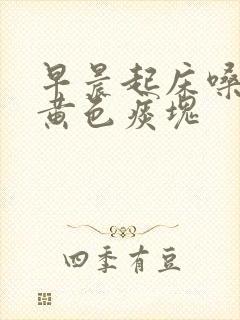 早晨起床嗓
黄色痰块
四季有豆